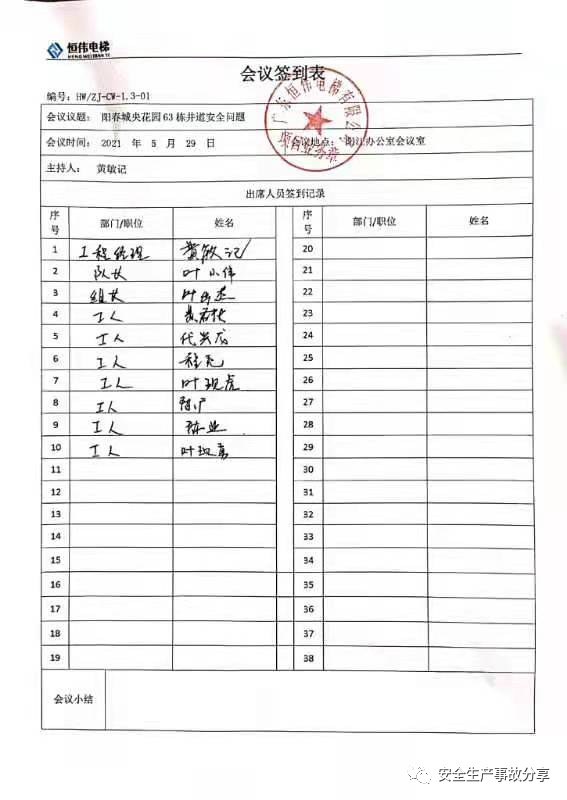 恒伟电梯
HENG WEI DIAN TI
会议签到表
编号：HW/ZJ-CW-1.3-01
会议议题： 阳春城央花园63栋井道安全问题
会议时间： 2021 年 5 月 29 日 会议地点： 阳江办公室会议室
主持人： 黄敏记
广东恒伟电梯有限公司
项目业务章
出席人员签到记录
序号 部门/职位 姓名 序号 部门/职位 姓名
1 工程经理 黄敏记 20
2 队长 叶小伟 21
3 组长 22
4 工人 23
5 工人 代兴龙 24
6 工人 25
7 工人 叶现虎 26
8 工人 27
9 工人 28
10 工人 29
11 30
12 31
13 32
14 33
15 34
16 35
17 36
18 37
19 38
会议小结
安全生产事故分享